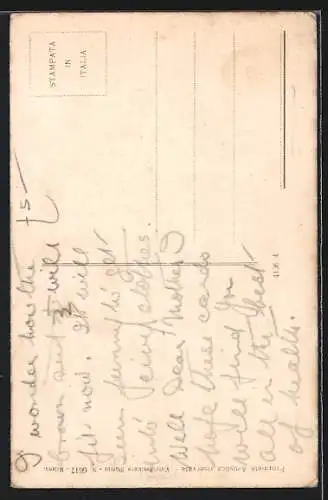 STAMPATA
IN
ITALIA
I wonder how the
brown suit will
fit now. It will
seem funny to get
into civing clothes.
Well Dear Mother I
hope these cards
will find you
all in the best
of health.
Proprietà Artistica riservata
41.6.4